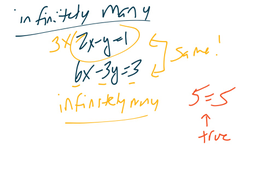 infinitely many
3x(2x-y=1)
6x-3y=3
same!
infinitely many
5=5
↑
true